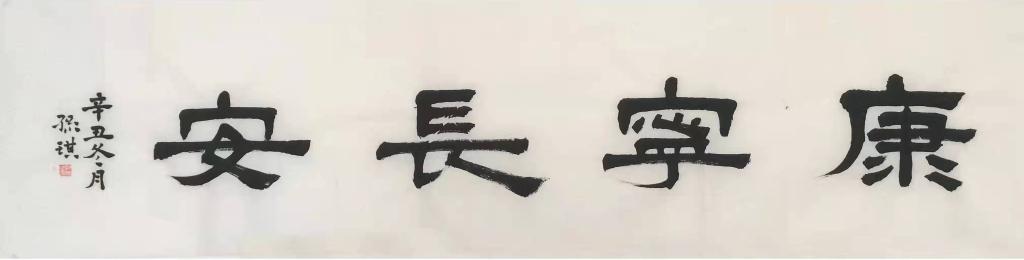 康寧長安
辛丑冬月
孫琪